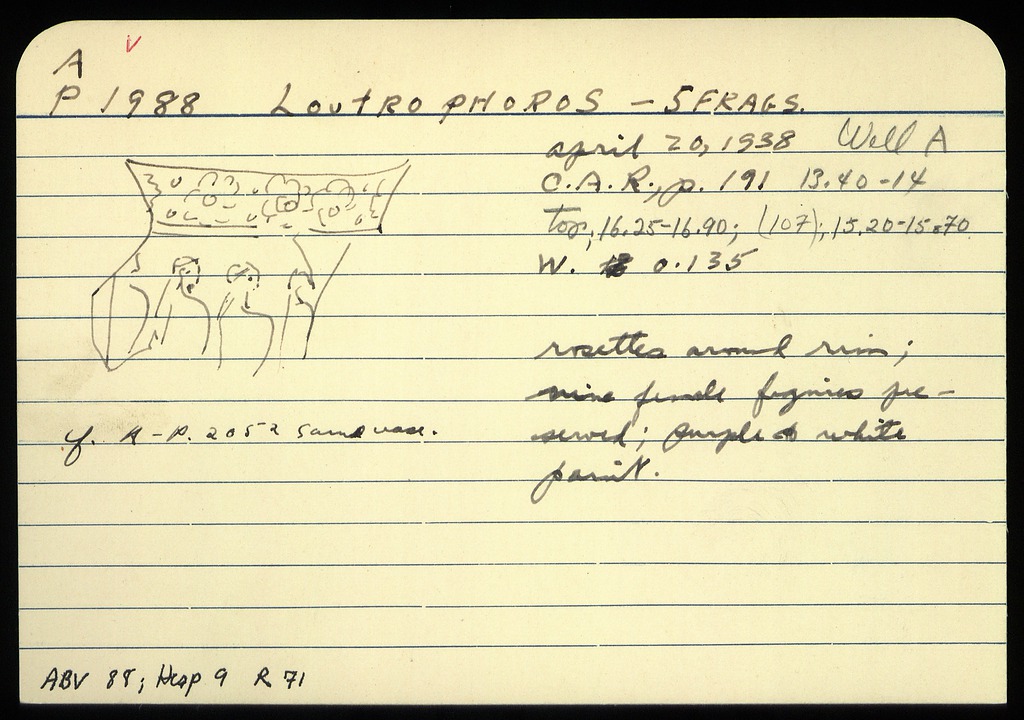 A V
P 1988 LOUTROPHOROS - 5 FRAGS.
april 20, 1938 Well A
C.A.R., p. 191 13.40-14
top, 16.25-16.90; (107); 15.20-15.70
W. 0.135
rosettes around rim;
nine female figures pre-
served; purple & white
paint.
cf. A-P. 2052 same vase.
ABV 88; Hesp 9 R 71